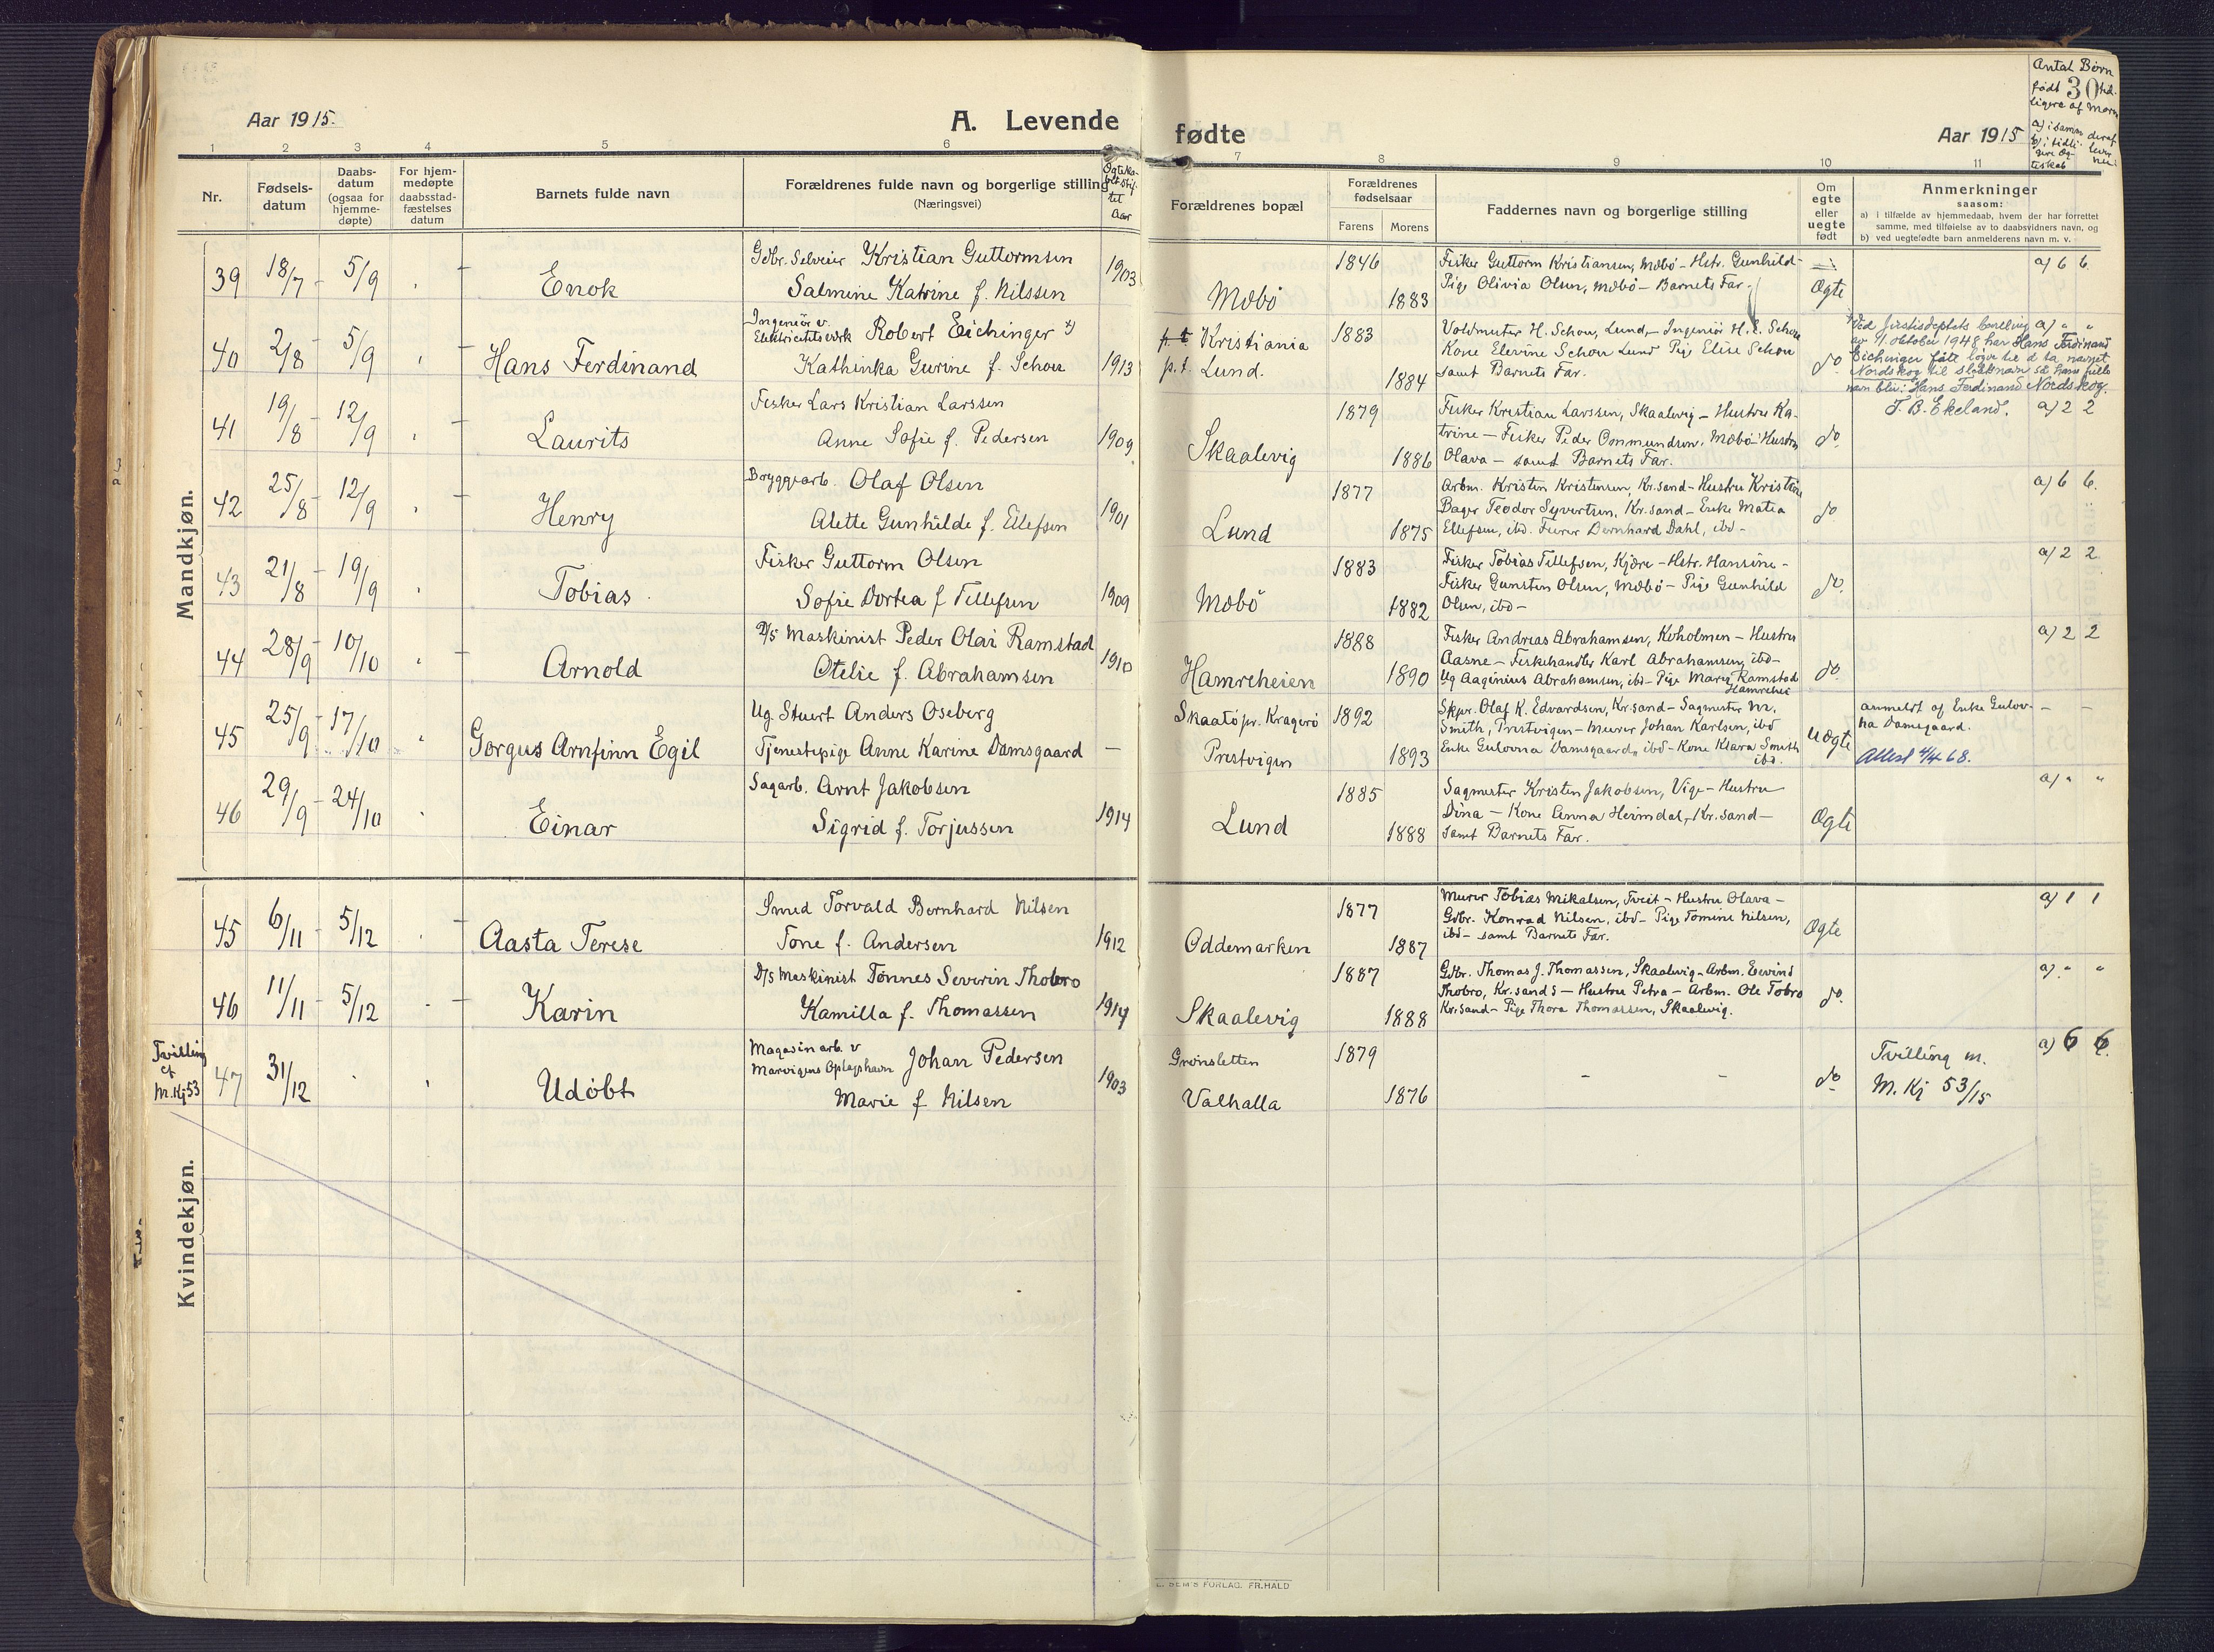 Aar 1915.
A. Levende
1 2 3 4 5 6
Nr.
Fødsels-
datum
Daabs-
datum
(ogsaa for
hjemme-
døpte)
For hjem-
medøpte
daabsstad-
fæstelses
datum
Barnets fulde navn
Forældrenes fulde navn og borgerlige stilling
(Næringsvei)
Aar
Mandkjøn.
39 18/7 - 5/9 Enok
Gdbr. Selveier Kristian Guttormsen
Salmine Katrine f. Nilssen 1903
40 2/8 5/9 Hans Ferdinand
Ingeniør v.
Elektricitetsverk Robert Eichinger x)
Kathinka Gurine f. Schou 1913
41 19/8 12/9 Laurits
Fisker Lars Kristian Larssen
Anne Sofie f. Pedersen 1909
42 25/8 - 12/9 Henry
Bryggearb. Olaf Olsen
Alette Gunhilde f. Ellefsen 1901
43 21/8 - 19/9 Tobias
Fisker Guttorm Olsen
Sofie Dortea f Tellefsen 1909
44 28/9 - 10/10 Arnold
D/S Maskinist Peder Olai Ramstad
Otelie f. Abrahamsen 1910
45 25/9 - 17/10 Gorgus Arnfinn Egil
Ug. Stuert Anders Oseberg
Tjenestepige Anne Karine Damsgaard -
46 29/9 - 24/10 Einar
Sagarb. Arnt Jakobsen
Sigrid f. Torjussen 1914
45 6/11 - 5/12 Aasta Terese
Smed Torvald Bernhard Nilsen
Tone f. Andersen 1912
46 11/11 - 5/12 Karin
D/S Maskinist Tønnes Severin Thobro
Kamilla f. Thomassen 1914
Tvilling
cf
M.Kj 53
47 31/12 Udøbt
Magasinarb. v
Marvigens Oplagshavn Johan Pedersen
Marie f Nilsen 1903
Kvindekjøn.
fødte
Aar 1915
30
Antal Børn
født tid-
ligere af Moren
7 8 9 10 11
Forældrenes bopæl
Forældrenes
fødselsaar
Farens Morens
Faddernes navn og borgerlige stilling
Om
egte
eller
uegte
født
Anmerkninger
saasom:
a) i tilfælde av hjemmedaab, hvem der har forrettet
samme, med tilføielse av to daabsvidners navn, og
b) ved uegtefødte barn anmelderens navn m. v.
Mæbø 1846 1883
Fisker Guttorm Kristiansen, Mæbø - Hstr. Gunhild -
Pige Olivia Olsen, Mæbø - Barnets Far.
Ægte a) 6 6.
p.t. Kristiania
p.t. Lund. 1883 1884
Voldmester H. Schou, Lund, - Ingeniør H. E. Schou
Kone Elevine Schou Lund Pige Elise Schou
samt Barnets Far.
do a) " "
Ved Justisdeptets bevilling
av 4. oktober 1948 har Hans Ferdinand
Eichinger fått løyve til å ta navnet
Nordskog til slektsnavn så hans fulle
navn blir: Hans Ferdinand Nordskog.
T. B. Ekeland.
Skaalevig 1879 1886
Fisker Kristian Larssen, Skaalevig - Hustru Ka-
trine - Fisker Peder Ommundsen, Mæbø - Hustru
Olava - samt Barnets Far.
do a) 2 2
Lund 1877 1875
Arbm. Kristen Kristensen, Kr.sand - Hustru Kristine
Bager Teodor Syvertsen, Kr.sand - Enke Matea
Ellefsen, ibd. Furer Bernhard Dahl, ibd -
do a) 6 6.
Mæbø 1883 1882
Fisker Tobias Tellefsen, Kjære - Hstr. Hansine -
Fisker Gunsten Olsen, Mæbø - Pige Gunhild
Olsen, ibd -
do. a) 2 2
Hamreheien 1888 1890
Fisker Andreas Abrahamsen, Koholmen - Hustru
Aasne - Fiskehandler Karl Abrahamsen, ibd -
Ug Aaginius Abrahamsen, ibd - Pige Marie Ramstad
Hamrehei
do. a) 2 2
Skaatø pr. Kragerø
Prestvigen 1892 1893
Skppr. Olaf K. Edvardsen, Kr.sand - Sagmester M.
Smith, Prestvigen - Murer Johan Karlsen, ibd
Enke Gulovna Damsgaard, ibd - Kone Klara Smith
ibd.
Uægte
anmeldt af Enke Gulov-
na Damsgaard. - -
Attest 4/4 68.
Lund 1885 1888
Sagmester Kristen Jakobsen, Vige - Hustru
Dina - Kone Anna Heimdal, Kr.sand -
samt Barnets Far.
Ægte a) " "
Oddemarken 1877 1887
Murer Tobias Mikalsen, Tveit - Hustru Olava -
Gdbr. Konrad Nilsen, ibd - Pige Tomine Nilsen,
ibd - samt Barnets Far.
Ægte a) 1 1
Skaalevig 1887 1888
Gdbr. Thomas J. Thomassen, Skaalevig - Arbm. Eevind
Thobro, Kr.sand S - Hustru Petra - Arbm. Ole Tobro
Kr.sand - Pige Thora Thomassen, Skaalevig.
do. a) " "
Grønsletten
Valhalla 1879 1876
- -
do
Tvilling m.
M. Kj 53/15
a) 6 6.
FORLAG. FR. HALD